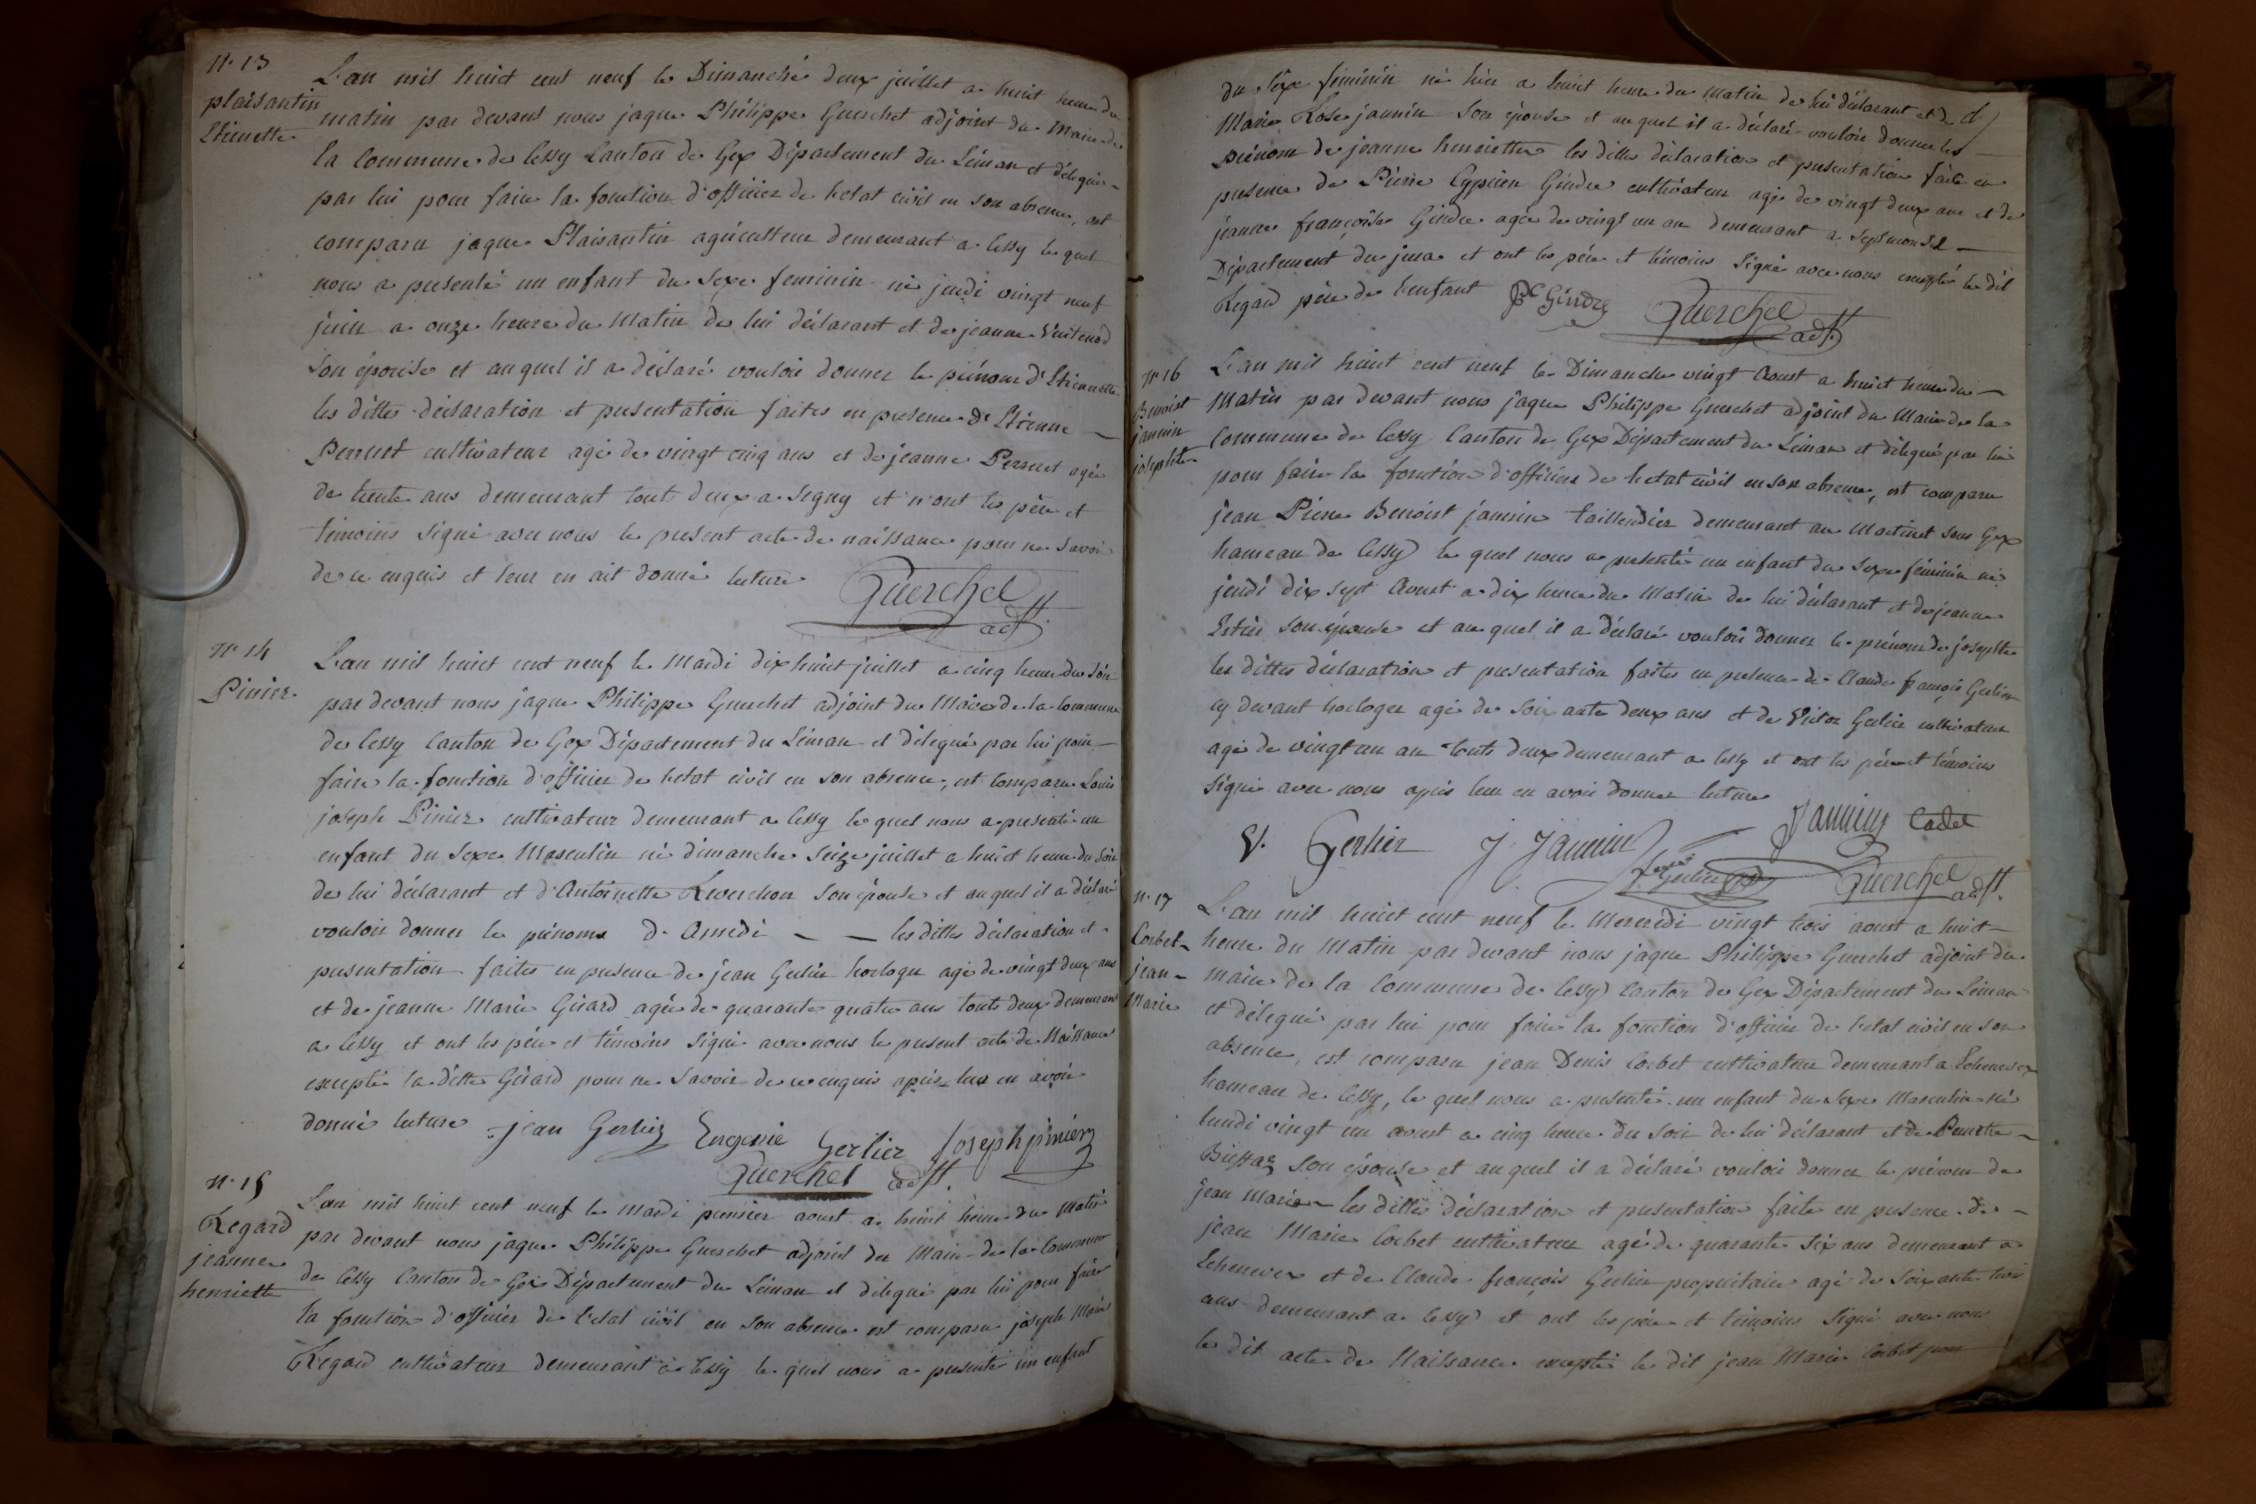 n.° 13
plaisantin
Etienette
L'an mil huict cent neuf le Dimanche deux juillet a huict heure du
matin par devant nous jaque Philippe Guerchet adjoint du Maire de
la Commune de Cessy Canton de Gex Département du Léman et délégué
par lui pour faire la fonction d'officier de l'etat civil en son absence, est
comparu jaque Plaisantin agriculteur demeurant a Cessy le quel
nous a presenté un enfant du Sexe feminin né jeudi vingt neuf
juin a onze heure du Matin de lui déclarant et de jeanne Vuitenod
Son épouse et auquel il a déclaré vouloir donner le prénom d'Etiennette
les dittes déclaration et presentation faites en presence de Etienne
Perruet cultivateur agé de vingt cinq ans et de jeanne Perruet agée
de trente ans demeurant tout deux a Segny et n'ont les pére et
témoins Signé avec nous le present acte de naissance pour ne savoir
de ce enquis et leur en ait donné lecture
Guerchet
adjt.
n.° 14
Pinier
L'an mil huict cent neuf le Mardi dix huict juillet a cinq heure du soir
par devant nous jaque Philippe Guerchet adjoint du Maire de la Commune
de Cessy Canton de Gex Département du Léman et délégué par lui pour
faire la fonction d'officier de l'etat civil en son absence, est Comparu Louis
joseph Pinier cultivateur demeurant a Cessy le quel nous a presenté un
enfant du Sexe Masculin né dimanche Seize juillet a huict heure du Soir
de lui déclarant et d'Antoinette Son épouse et auquel il a déclaré
vouloir donner le prénoms d'Amedé — — les dittes déclaration et
presentation faites en presence de jean Gerlier horloger agé de vingt deux ans
et de jeanne Marie Girard agée de quarante quatre ans touts deux demeurant
a Cessy et ont les pére et témoins Signé avec nous le present acte de Naissance
excepté la ditte Girard pour ne Savoir de ce enquis aprés leur en avoir
donné lecture jean Gerlier Eugenie Gerlier Joseph pinier
Guerchet adjt.
n.° 15
Regard
jeanne
henriette
L'an mil huict cent neuf le mardi premier aoust a huict heure du Matin
par devant nous jaque Philippe Guerchet adjoint du Maire de la Commune
de Cessy Canton de Gex Département du Léman et délégué par lui pour faire
la fonction d'officier de l'etat civil en Son absence est comparu joseph Marie
Regard cultivateur demeurant a Cessy le quel nous a presenté un enfant
du Sexe féminin né hier a huict heure du matin de lui déclarant et de
Marie Rose jannin Son épouse et auquel il a déclaré vouloir donner les
prénom de jeanne henriette les dittes déclaration et presentation faite en
presence de Pierre Cyprien Gindre cultivateur agé de vingt deux ans et de
jeanne françoise Gindre agée de vingt un an demeurant a Septmoncel
Département du jura et ont les pére et témoins Signé avec nous excepté le dit
Regard pére de l'enfant PC Gindre Guerchet
adjt.
n.° 16
Benoist
jannin
josephte
L'an mil huict cent neuf le Dimanche vingt Aoust a huict heure du
Matin par devant nous jaque Philippe Guerchet adjoint du Maire de la
Commune de Cessy Canton de Gex Département du Léman et délégué par lui
pour faire la fonction d'officier de l'etat civil en son absence, est comparu
jean Pierre Benoist jannin taillendier demeurant au Martinet sous Gex
hameau de Cessy le quel nous a presenté un enfant du Sexe féminin né
jeudi dix sept Aoust a dix heure du Matin de lui déclarant et de jeanne
Son épouse et auquel il a déclaré vouloir donner le prénom de josephte
les dittes déclaration et presentation faites en presence de Claude françois Gerlier
cy devant horloger agé de Soixante deux ans et de Victor Gerlier cultivateur
agé de vingt un an touts deux demeurant a Cessy et ont les pére et témoins
Signé avec nous aprés leur en avoir donner lecture
V. Gerlier J. Jannin Jannin Cadet
Gerlier Guerchet adjt.
n.° 17
Corbet
jean
Marie
L'an mil huict cent neuf le Mercredi vingt trois aoust a huict
heure du Matin par devant nous jaque Philippe Guerchet adjoint du
maire de la Commune de Cessy Canton de Gex Département du Léman
et délégué par lui pour faire la fonction d'officier de l'etat civil en son
absence, est comparu jean Denis Corbet cultivateur demeurant a Echenevex
hameau de Cessy, le quel nous a presenté un enfant du Sexe Masculin né
lundi vingt un aoust a cinq heure du Soir de lui déclarant et de Pernette
Son épouse et auquel il a déclaré vouloir donner le prénom de
jean Marie les dittes déclaration et presentation faite en presence de
jean Marie Corbet cultivateur agé de quarante Six ans demeurant a
Echenevex et de Claude françois Gerlier proprietaire agé de Soixante trois
ans demeurant a Cessy et ont les pére et témoins Signé avec nous
le dit acte de Naissance excepté le dit jean Marie Corbet pour